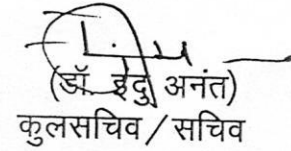 (डॉ. इंदु अनंत)
कुलसचिव / सचिव